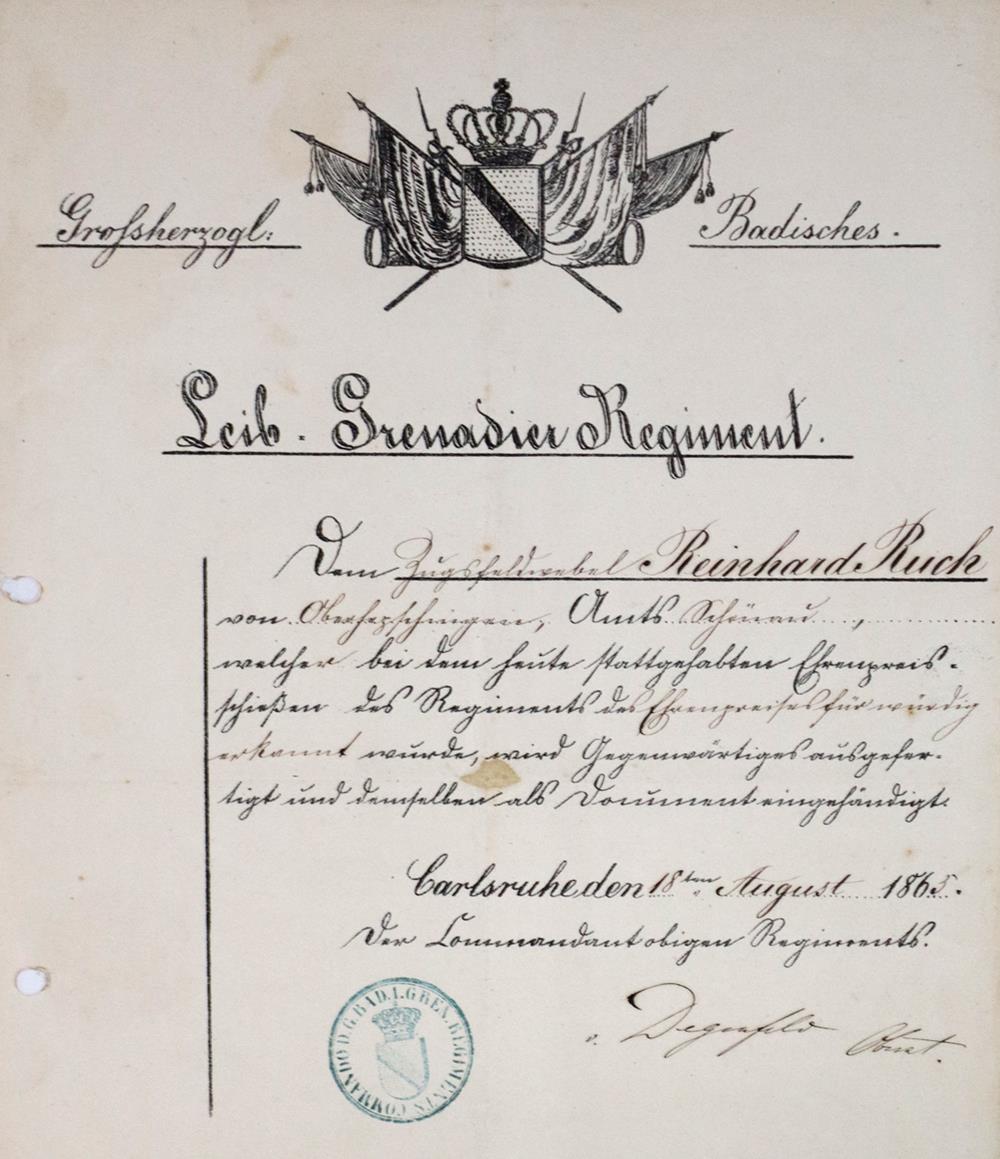 Grossherzogl: Badisches.
Leib. Grenadier Regiment.
Dem Zugsfeldwebel Reinhard Ruch
von Amts Schönau,
welcher bei dem heute stattgehabten Ehrenpreis-
schießen des Regiments des Ehrenpreises für würdig
erkannt wurde, wird Gegenwärtiges ausgefer-
tigt und demselben als Document eingehändigt.
Carlsruhe den 18ten August 1865.
Der Commandant obigen Regiments.
v. Degenfeld Oberst.
COMMANDO D. G. BAD. L. GREN. REGIMENTS